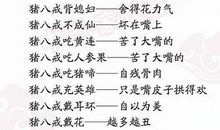 猪八戒背媳妇——舍得花力气
猪八戒不成仙——坏在嘴上
猪八戒吃黄连——苦了大嘴的
猪八戒吃人参果——苦了大嘴的
猪八戒吃猪蹄——自残骨肉
猪八戒充英雄——只是嘴皮子拱得欢
猪八戒戴耳环——自以为美
猪八戒戴花——越多越丑